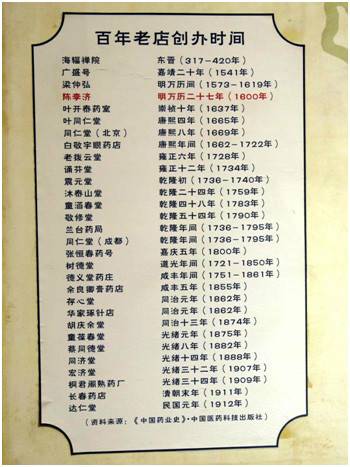 百年老店创办时间
海辐禅院 东晋（317-420年）
广盛号 嘉靖二十年（1541年）
梁仲弘 明万历间（1573-1619年）
陈李济 明万历二十七年（1600年）
叶开泰药室 崇祯十年（1637年）
叶同仁堂 康熙四年（1665年）
同仁堂（北京） 康熙八年（1669年）
白敬宇眼药店 康熙年间（1662-1722年）
老拨云堂 雍正六年（1728年）
诵芬堂 雍正十二年（1734年）
震元堂 乾隆初（1736-1740年）
沐泰山堂 乾隆二十四年（1759年）
童涵春堂 乾隆四十八年（1783年）
敬修堂 乾隆五十四年（1790年）
兰台药局 乾隆年间（1736-1795年）
同仁堂（成都） 乾隆年间（1736-1795年）
张恒春药号 嘉庆五年（1800年）
树德堂 道光年间（1721-1850年）
德义堂药庄 咸丰年间（1751-1861年）
余良卿膏药店 咸丰五年（1855年）
存心堂 同治元年（1862年）
华家琢针店 同治元年（1862年）
胡庆余堂 同治十三年（1874年）
童葆春堂 光绪元年（1875年）
蔡同德堂 光绪八年（1882年）
同济堂 光绪十四年（1888年）
宏济堂 光绪三十二年（1907年）
桐君阁熟药厂 光绪三十四年（1909年）
长春药店 清朝末年（1911年）
达仁堂 民国元年（1912年）
（资料来源：《中国药业史》·中国医药科技出版社）